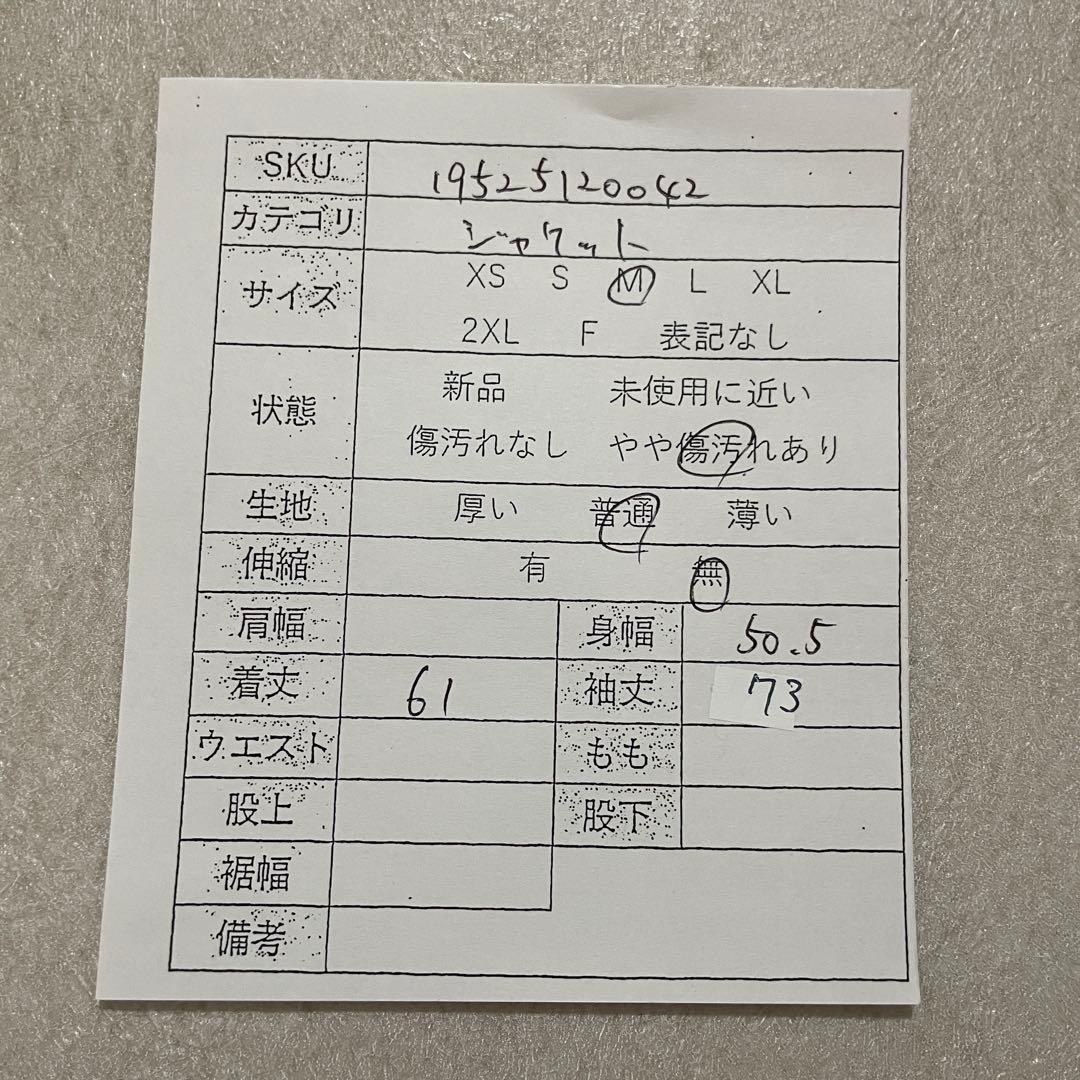 SKU 19525120042
カテゴリ ジャケット
サイズ XS S M L XL
2XL F 表記なし
状態 新品 未使用に近い
傷汚れなし やや傷汚れあり
生地 厚い 普通 薄い
伸縮 有 無
肩幅 身幅 50.5
着丈 61 袖丈 73
ウエスト もも
股上 股下
裾幅
備考